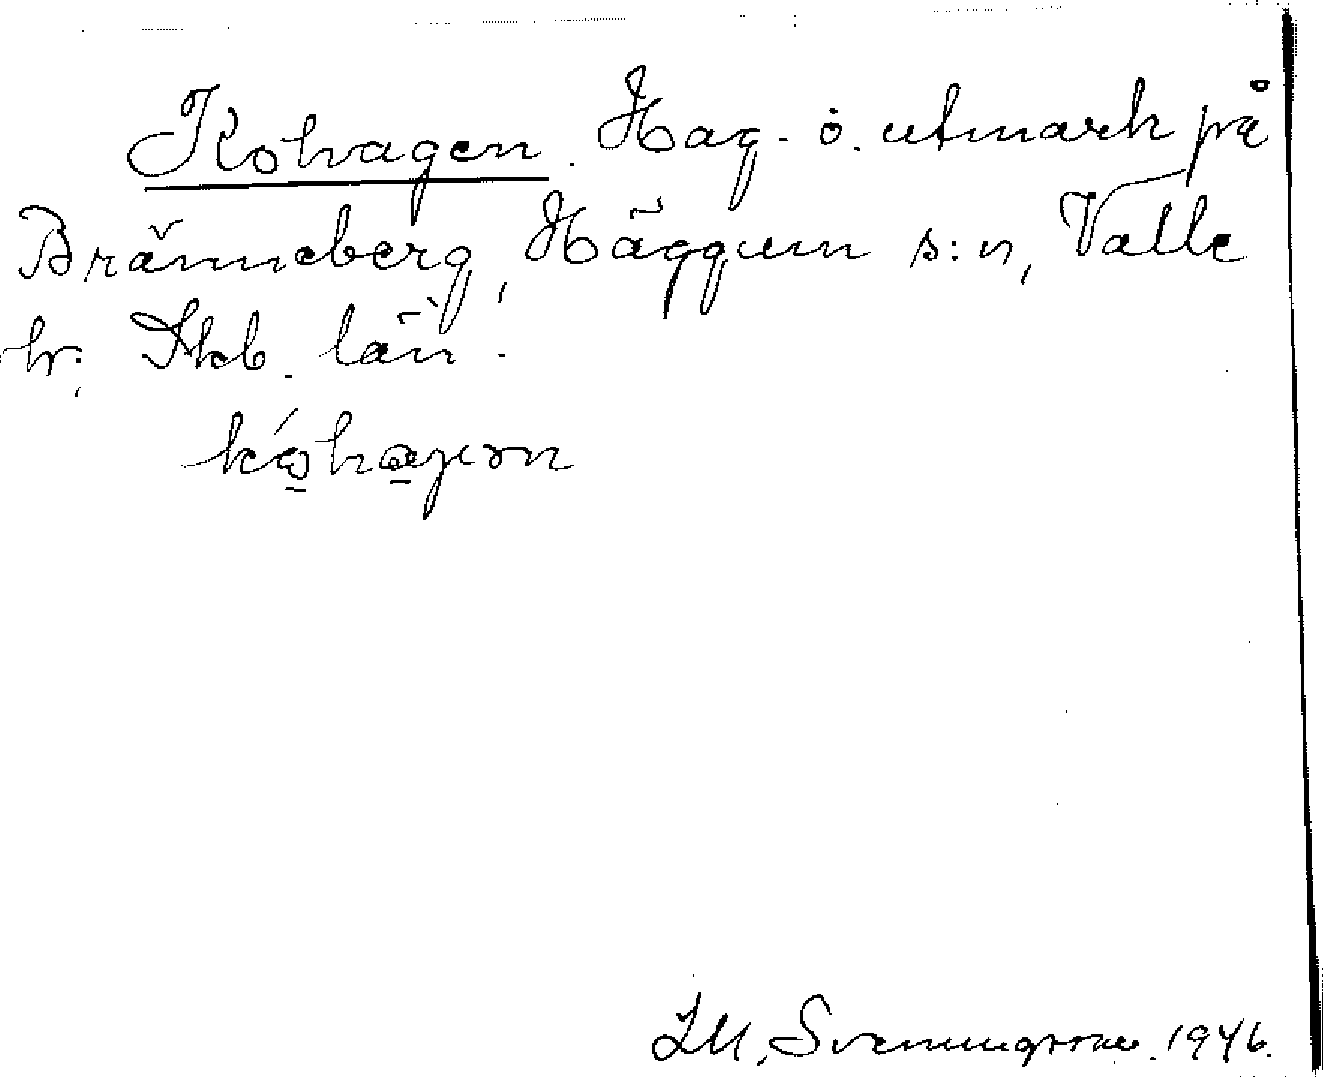 Kohagen. Hag- o. utmark på
Bränneberg, Häggum s:n, Valle
hr; Skb. län.
kóhaɡɷn
I.M. Svenningsson. 1946.